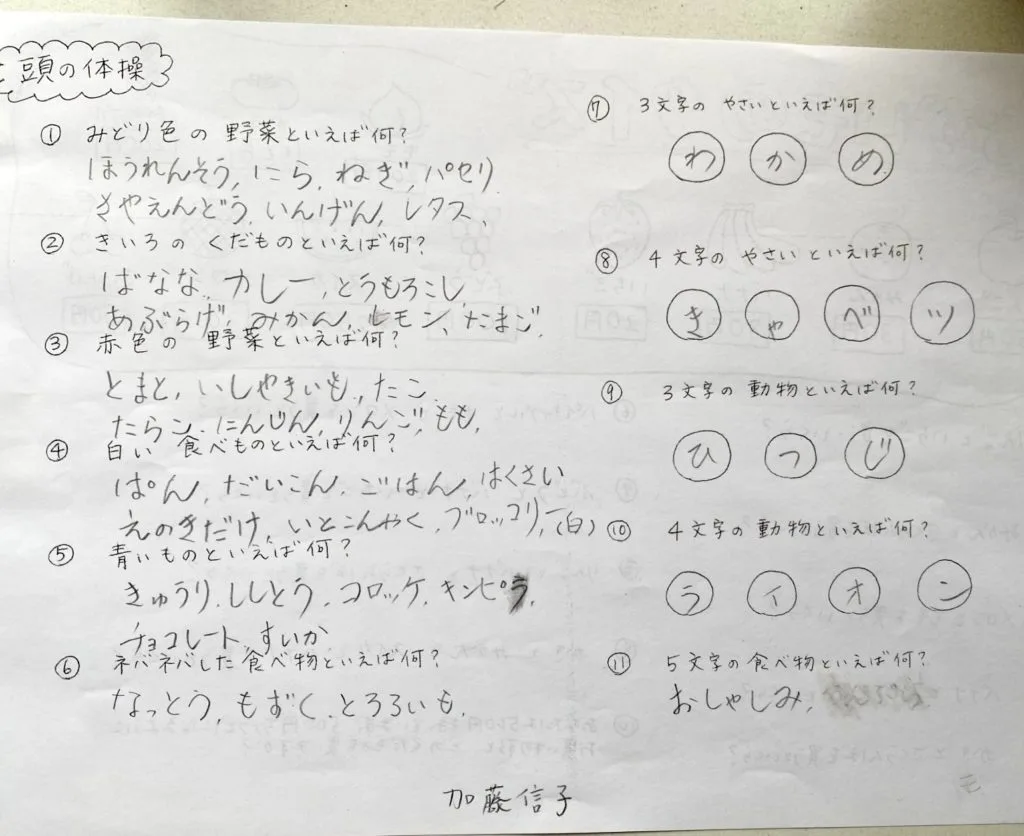 頭の体操
① みどり色の 野菜といえば何?
ほうれんそう, にら, ねぎ, パセリ
さやえんどう, いんげん, レタス,
② きいろの くだものといえば何?
ばなな, カレー, とうもろこし,
あぶらげ, みかん, レモン, たまご,
③ 赤色の 野菜といえば何?
とまと, いしやきいも, たこ,
たらこ, にんじん, りんご, もも,
④ 白い 食べものといえば何?
ぱん, だいこん, ごはん, はくさい
えのきだけ, いとこんやく, ブロッコリー(白)
⑤ 青いものといえば何?
きゅうり, ししとう, コロッケ, キンピラ,
チョコレート, すいか
⑥ ネバネバした食べ物といえば何?
なっとう, もずく, とろろいも,
⑦ 3文字の やさいといえば何?
わ か め
⑧ 4文字の やさいといえば何?
き ゃ べ ツ
⑨ 3文字の 動物といえば何?
ひ つ じ
⑩ 4文字の 動物といえば何?
ラ イ オ ン
⑪ 5文字の食べ物といえば何?
おしゃしみ,
加藤信子